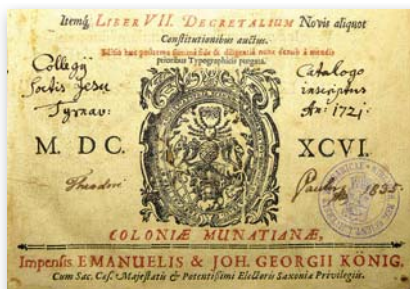 Itemq́; LIBER VII. DECRETALIUM Novis aliquot
Constitutionibus auctus.
Editio hac postrema summâ fide & diligentiâ nunc denuò à mendis
prioribus Typographicis purgata.
Collegij
Soctis Jesu
Tyrnav:
Catalogo
inscriptus
An: 1721
M. DC.
XCVI.
Theodori
1835.
COLONIÆ MUNATIANÆ,
Impensis EMANUELIS & JOH. GEORGII KÖNIG.
Cum Sac. Cæs. Majestatis & Potentissimi Electoris Saxoniæ Privilegiis.